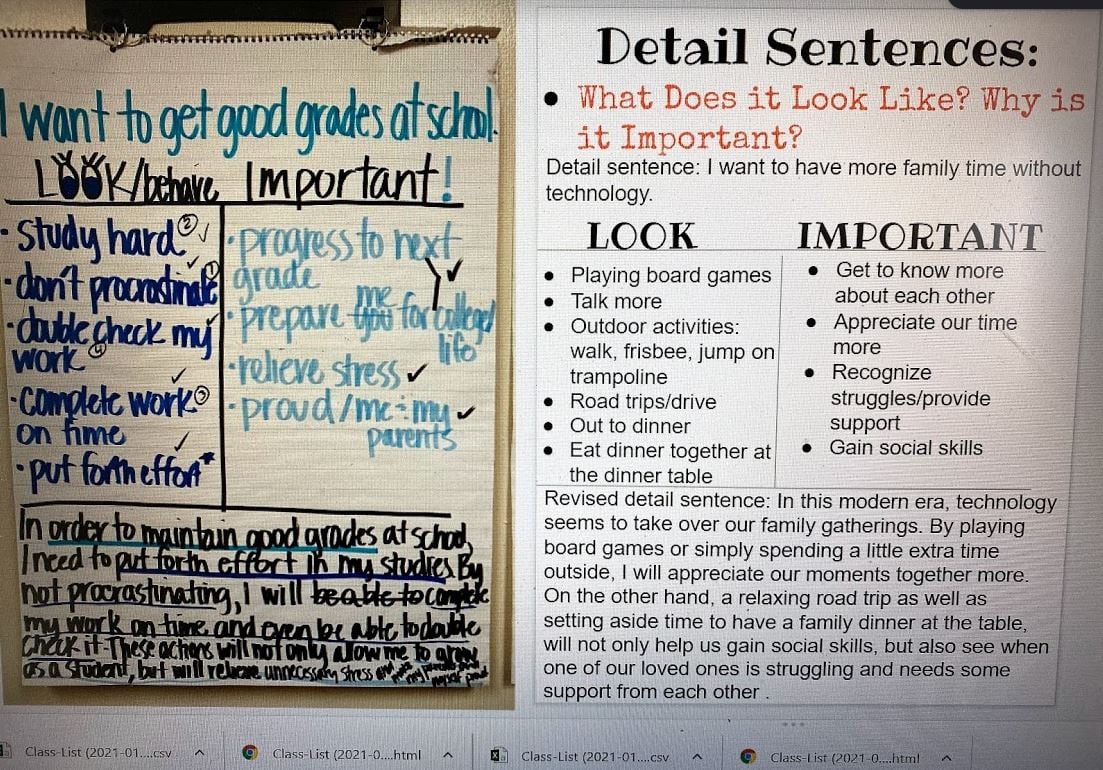 I want to get good grades at school.
LOOK/behave Important!
• study hard ② ✓
• don't procrastinate ①
• double check my
work ④
• complete work ③
on time
• put forth effort*
• progress to next
grade
me
• prepare you for college/
life
• relieve stress ✓
• proud/me + my ✓
parents
In order to maintain good grades at school,
I need to put forth effort in my studies. By
not procrastinating, I will be able to complete
my work on time and even be able to double
check it. These actions will not only allow me to grow
as a student, but will relieve unnecessary stress and
Detail Sentences:
• What Does it Look Like? Why is
it Important?
Detail sentence: I want to have more family time without
technology.
LOOK
• Playing board games
• Talk more
• Outdoor activities:
walk, frisbee, jump on
trampoline
• Road trips/drive
• Out to dinner
• Eat dinner together at
the dinner table
IMPORTANT
• Get to know more
about each other
• Appreciate our time
more
• Recognize
struggles/provide
support
• Gain social skills
Revised detail sentence: In this modern era, technology
seems to take over our family gatherings. By playing
board games or simply spending a little extra time
outside, I will appreciate our moments together more.
On the other hand, a relaxing road trip as well as
setting aside time to have a family dinner at the table,
will not only help us gain social skills, but also see when
one of our loved ones is struggling and needs some
support from each other .
Class-List (2021-01....csv
Class-List (2021-0....html
Class-List (2021-01....csv
Class-List (2021-0....html